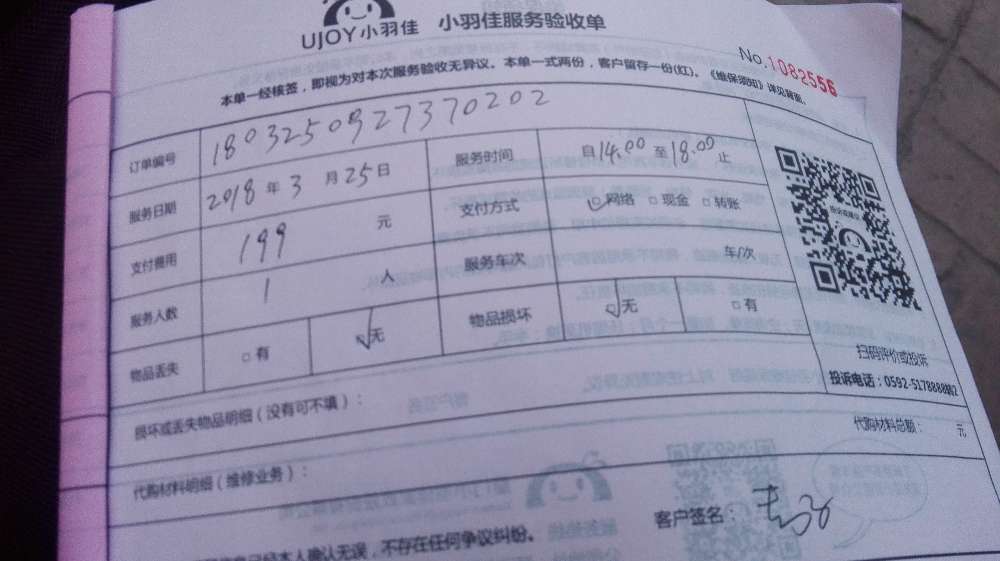 UJOY小羽佳 小羽佳服务验收单
No.1082556
本单一经核签，即视为对本次服务验收无异议。本单一式两份，客户留存一份(红)。《维保须知》详见背面。
订单编号 1803250927370202
服务日期 2018年3月25日 服务时间 自14.00至18.00止
支付费用 199 元 支付方式 ☑网络 □现金 □转账
服务人数 1 人 服务车次 车/次
物品丢失 □有 ☑无 物品损坏 ☑无 □有
扫码评价或投诉
投诉电话：0592-5178888转2
损坏或丢失物品明细（没有可不填）：
代购材料明细（维修业务）： 代购材料总额： 元
客户签名：
已经本人确认无误，不存在任何争议纠纷。